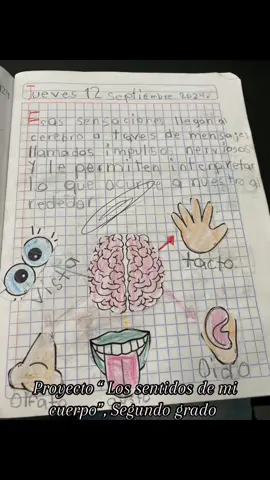 Jueves 12 Septiembre 2024
Esas sensaciones llegan al
cerebro a traves de mensajes
llamados impulsos nerviosos
Y le permiten interpretar
lo que ocurre a nuestro al
rededor
tacto
Vista
Oido
Olfato
Proyecto “ Los sentidos de mi
cuerpo”, Segundo grado